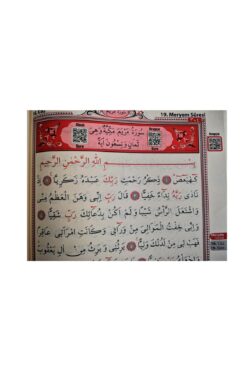 19. Meryem Sûresi
سُورَةُ مَرْيَمَ مَكِّيَّةٌ وَهِيَ
ثَمَانٍ وَتِسْعُونَ اٰيَةً
بِسْمِ اللّٰهِ الرَّحْمٰنِ الرَّحِيمِ
كٓهٰيٰعٓصٓ ذِكْرُ رَحْمَتِ رَبِّكَ عَبْدَهُ زَكَرِيَّا اِذْ
نَادٰى رَبَّهُ نِدَٓاءً خَفِيًّا قَالَ رَبِّ اِنّ۪ي وَهَنَ الْعَظْمُ مِنّ۪ي
وَاشْتَعَلَ الرَّأْسُ شَيْبًا وَلَمْ اَكُنْ بِدُعَٓائِكَ رَبِّ شَقِيًّا
وَاِنّ۪ي خِفْتُ الْمَوَالِيَ مِنْ وَرَٓاء۪ي وَكَانَتِ امْرَاَت۪ي عَاقِرًا
فَهَبْ ل۪ي مِنْ لَدُنْكَ وَلِيًّا يَرِثُن۪ي وَيَرِثُ مِنْ اٰلِ يَعْقُوبَ